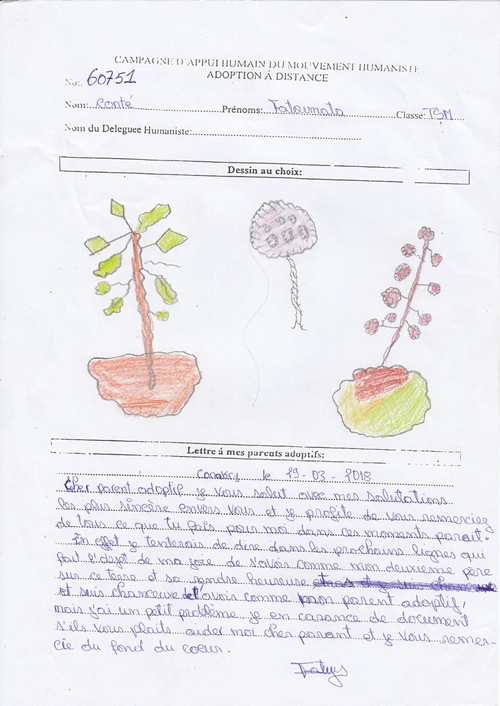 CAMPAGNE D'APPUI HUMAIN DU MOUVEMENT HUMANISTE
ADOPTION Á DISTANCE
No: 60751
Nom: Conté Prénoms: Fatoumata Classe: TSM
Nom du Deleguee Humaniste:
Dessin au choix:
Lettre á mes parents adoptifs:
Conakry le 29-03-2018
Cher parent adoptif je vous salut avec mes salutations
les plus sincère envers vous et je profite de vous remercieg
de tous ce que tu fais pour moi dans ces moments parait.
En effet je tenterais de dire dans les prochains lignes qui
fait l'objet de ma joie de t'avoir comme mon deuxieme père
sur ce terre et sa rendre heureuse
et suis chanceuse d'avoir comme parent adoptif,
mais j'ai un petit problème je en carance de document
s'ils vous plaits aider moi cher parent et je vous remer-
cie du fond du cœur.